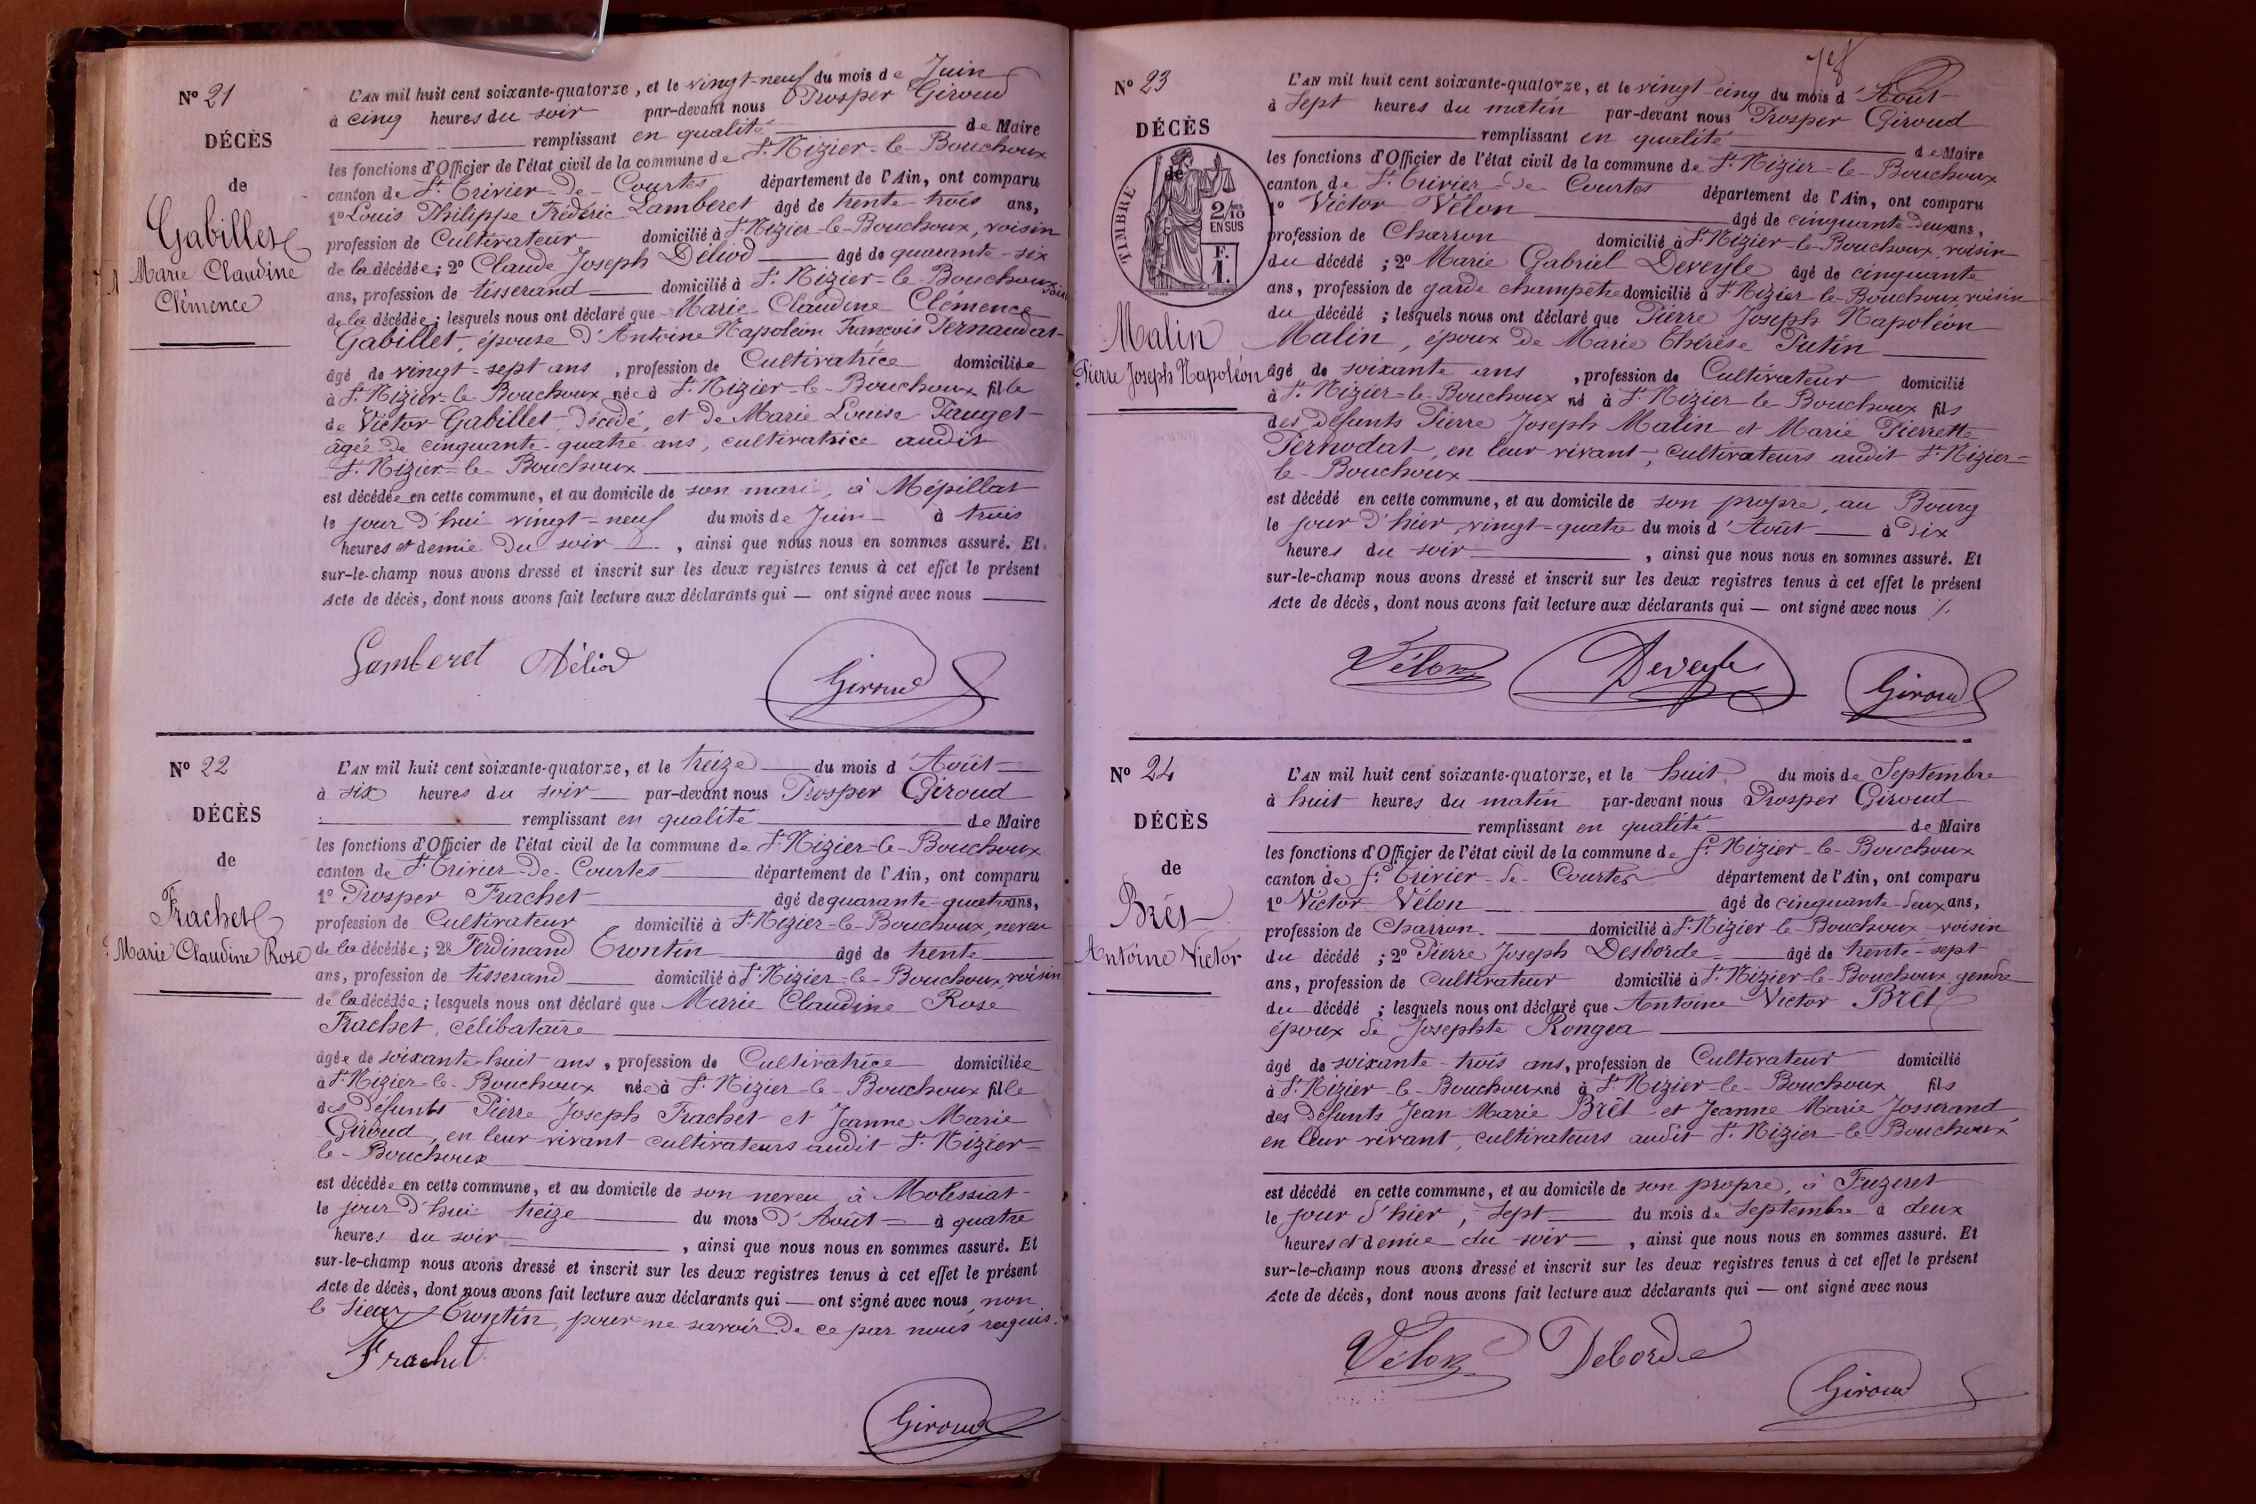 N° 21
DÉCÈS
de
Gabillet
Marie Claudine
Clémence
L'AN mil huit cent soixante-quatorze, et le vingt-neuf du mois de Juin
à cinq heures du soir par-devant nous Prosper Giroud
remplissant en qualité de Maire
les fonctions d'Officier de l'état civil de la commune de St. Nizier-le-Bouchoux
canton de St. Trivier-de-Courtes département de l'Ain, ont comparu
1° Louis Philippe Frédéric Lamberet âgé de trente trois ans,
profession de Cultivateur domicilié à St. Nizier-le-Bouchoux, voisin
de la décédée; 2° Claude Joseph Déliod âgé de quarante-six
ans, profession de tisserand domicilié à St. Nizier-le-Bouchoux
de la décédée; lesquels nous ont déclaré que Marie Claudine Clémence
Gabillet, épouse d'Antoine Napoléon François Pernaudat
âgé de vingt-sept ans, profession de Cultivatrice domiciliée
à St. Nizier-le-Bouchoux née à St. Nizier-le-Bouchoux fille
de Victor Gabillet, décédé, et de Marie Louise Pauget
âgée de cinquante-quatre ans, cultivatrice audit
St. Nizier-le-Bouchoux
est décédée en cette commune, et au domicile de son mari, à Mépillat
le jour d'hui vingt-neuf du mois de Juin à trois
heures et demie du soir, ainsi que nous nous en sommes assuré. Et
sur-le-champ nous avons dressé et inscrit sur les deux registres tenus à cet effet le présent
Acte de décès, dont nous avons fait lecture aux déclarants qui — ont signé avec nous
Lamberet Déliod Giroud
N° 22
DÉCÈS
de
Frachet
Marie Claudine Rose
L'AN mil huit cent soixante-quatorze, et le treize du mois d'Août
à six heures du soir par-devant nous Prosper Giroud
remplissant en qualité de Maire
les fonctions d'Officier de l'état civil de la commune de St. Nizier-le-Bouchoux
canton de St. Trivier-de-Courtes département de l'Ain, ont comparu
1° Prosper Frachet âgé de quarante-quatre ans,
profession de Cultivateur domicilié à St. Nizier-le-Bouchoux, neveu
de la décédée; 2° Ferdinand Trontin âgé de trente
ans, profession de tisserand domicilié à St. Nizier-le-Bouchoux, voisin
de la décédée; lesquels nous ont déclaré que Marie Claudine Rose
Frachet, célibataire
âgée de soixante-huit ans, profession de Cultivatrice domiciliée
à St. Nizier-le-Bouchoux née à St. Nizier-le-Bouchoux fille
des défunts Pierre Joseph Frachet et Jeanne Marie
Giroud, en leur vivant cultivateurs audit St. Nizier-
le-Bouchoux
est décédée en cette commune, et au domicile de son neveu, à Molessiat
le jour d'hui treize du mois d'Août à quatre
heures du soir, ainsi que nous nous en sommes assuré. Et
sur-le-champ nous avons dressé et inscrit sur les deux registres tenus à cet effet le présent
Acte de décès, dont nous avons fait lecture aux déclarants qui — ont signé avec nous, non
le sieur Trontin, pour ne savoir de ce par nous requis.
Frachet
Giroud
N° 23
DÉCÈS
de
TIMBRE
2/10
EN SUS
F.
1.
Malin
Pierre Joseph Napoléon
L'AN mil huit cent soixante-quatorze, et le vingt-cinq du mois d'Août
à sept heures du matin par-devant nous Prosper Giroud
remplissant en qualité de Maire
les fonctions d'Officier de l'état civil de la commune de St. Nizier-le-Bouchoux
canton de St. Trivier-de-Courtes département de l'Ain, ont comparu
1° Victor Vélon âgé de cinquante-deux ans,
profession de Charron domicilié à St. Nizier-le-Bouchoux, voisin
du décédé; 2° Marie Gabriel Deveyle âgé de cinquante
ans, profession de garde champêtre domicilié à St. Nizier-le-Bouchoux, voisin
du décédé; lesquels nous ont déclaré que Pierre Joseph Napoléon
Malin, époux de Marie Thérèse Putin
âgé de soixante ans, profession de Cultivateur domicilié
à St. Nizier-le-Bouchoux né à St. Nizier-le-Bouchoux fils
des défunts Pierre Joseph Malin et Marie Pierrette
Pernodat, en leur vivant, cultivateurs audit St. Nizier-
le-Bouchoux
est décédé en cette commune, et au domicile de son propre, au Bourg
le jour d'hier, vingt-quatre du mois d'Août à dix
heures du soir, ainsi que nous nous en sommes assuré. Et
sur-le-champ nous avons dressé et inscrit sur les deux registres tenus à cet effet le présent
Acte de décès, dont nous avons fait lecture aux déclarants qui — ont signé avec nous
Vélon Deveyle Giroud
N° 24
DÉCÈS
de
Brêt
Antoine Victor
L'AN mil huit cent soixante-quatorze, et le huit du mois de Septembre
à huit heures du matin par-devant nous Prosper Giroud
remplissant en qualité de Maire
les fonctions d'Officier de l'état civil de la commune de St. Nizier-le-Bouchoux
canton de St. Trivier-de-Courtes département de l'Ain, ont comparu
1° Victor Vélon âgé de cinquante-deux ans,
profession de Charron domicilié à St. Nizier-le-Bouchoux voisin
du décédé; 2° Pierre Joseph Desborde âgé de trente-sept
ans, profession de Cultivateur domicilié à St. Nizier-le-Bouchoux gendre
du décédé; lesquels nous ont déclaré que Antoine Victor Brêt
époux de Josephte Rongea
âgé de soixante-trois ans, profession de Cultivateur domicilié
à St. Nizier-le-Bouchoux né à St. Nizier-le-Bouchoux fils
des défunts Jean Marie Brêt et Jeanne Marie Josserand
en leur vivant, cultivateurs audit St. Nizier-le-Bouchoux
est décédé en cette commune, et au domicile de son propre, à Fuzeret
le jour d'hier, sept du mois de Septembre à deux
heures et demie du soir, ainsi que nous nous en sommes assuré. Et
sur-le-champ nous avons dressé et inscrit sur les deux registres tenus à cet effet le présent
Acte de décès, dont nous avons fait lecture aux déclarants qui — ont signé avec nous
Vélon Deborde
Giroud